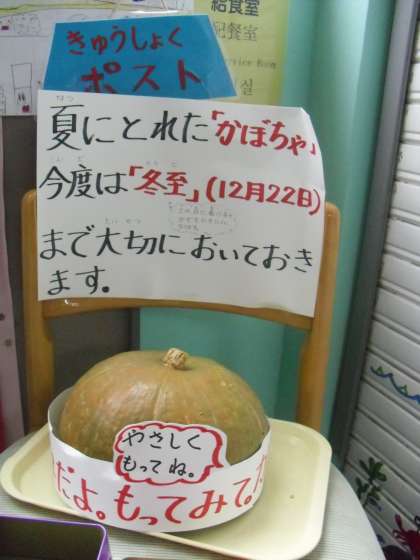 給食室
配餐室
Service Room
실
きゅうしょく
ポスト
なつ
夏にとれた「かぼちゃ」
こんど とうじ
今度は「冬至」(12月22日)
たいせつ
まで大切においておき
ます。
やさしく
もってね。
だよ。もってみて。